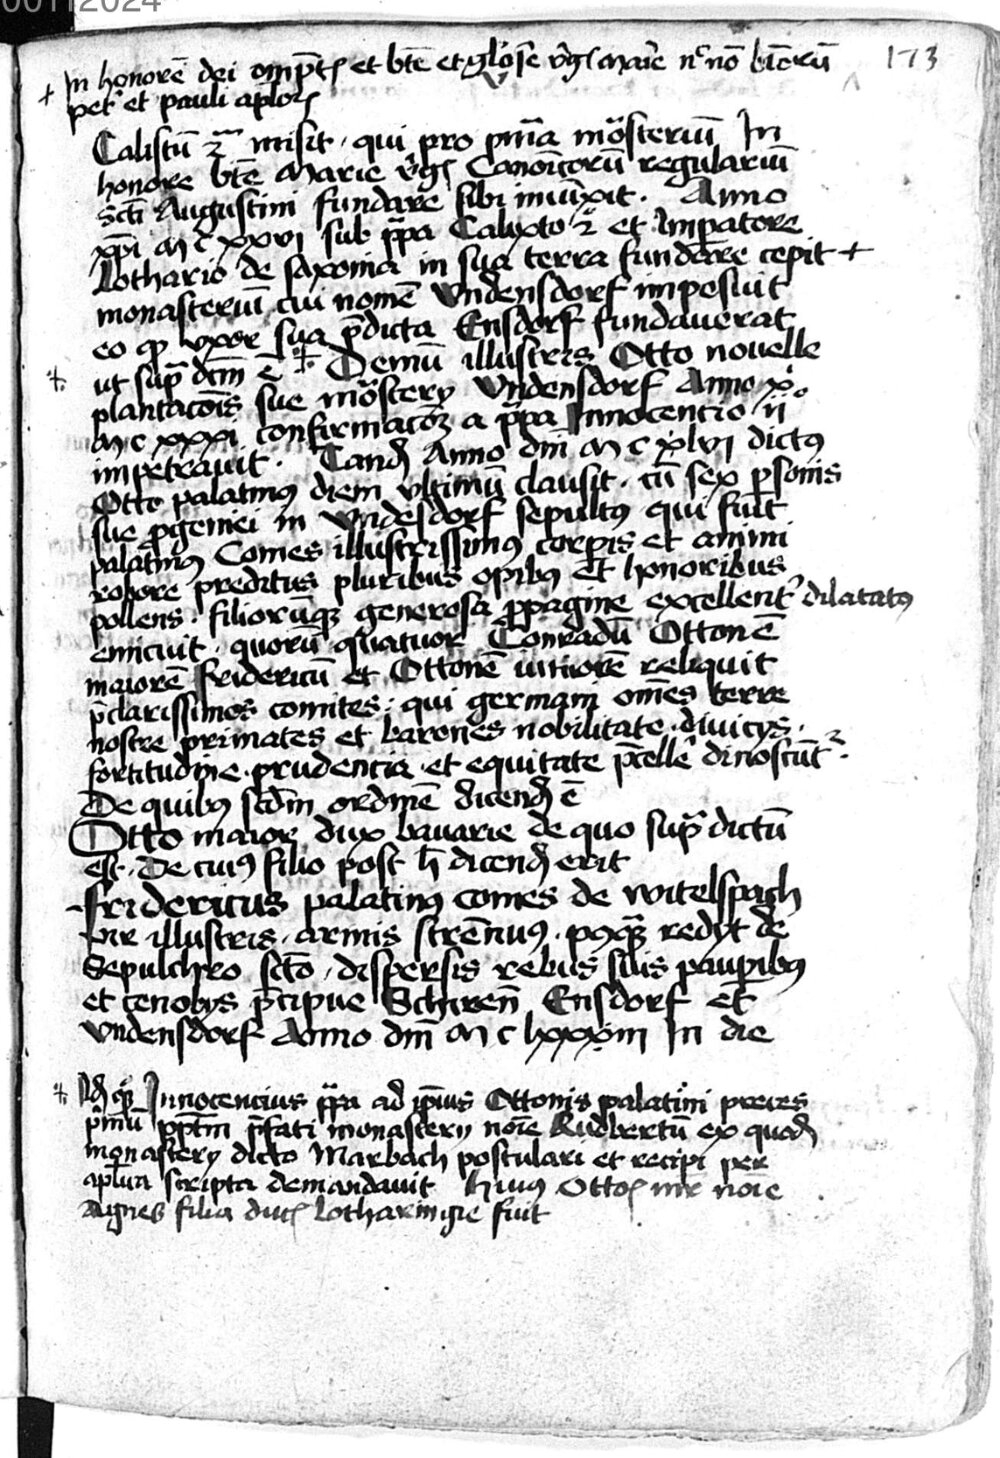 00112024
173
+ In honorē dei omptꝭ et btē et gl'ose v'gꝭ marie nc nō btōrū
pet' et pauli aplorꝭ
Calistū 2m misit · qui pro pnīa mōsteriū In
honore btē Marie v'gꝭ Canonicorū regulariū
scti Augustini fundare sibi iniūxit · Anno
xpi M c xxvi sub ppa Calixto 2 et Impatore
Lothario de saxonia in sua terra fundare cepit +
monasteriū cui nomē Vndensdorf imposuit
eo qp vxor sua pdicta Ensdorf fundauerat
ut sup dcm ē ·‡· Demū illustris Otto nouelle
plantacōis sue mōstery Vndensdorf Anno xi
M c xxxi confirmacōꝫ a ppa Innocentio ii
impetrauit · Tandē Anno dm̄ M c xlvi dictꝰ
Otto palatinꝰ diem vltimū clausit · cū sex psonis
sue pgeniei in Vndesdorf sepultꝰ qui fuit
palatinꝰ Comes illustrissimꝰ corpis et animi
robore preditus pluribus opibꝰ et honoribus
pollens · filiorūqꝫ generosa ppagine excellent' dilatatꝰ
emicuit · quorū quatuor Conradū Ottonē
maiorē fridericū et Ottonē iuniorē reliquit
pclarissimos comites · qui germani omēs terre
nostre primates et barones nobilitate · diuicys ·
fortitudine · prudencia · et equitate pcelle dinoscūt2 ·
De quibꝰ scdm ordinē dicendū ē
Otto maior dux bauarie de quo sup dictū
est · De cuiꝰ filio post h dicendū erit
Fridericus palatinꝰ comes de Witelspach
vir illustris · armis strēnuus · pꝰqꝫ redyt de
Sepulchro scto · dispersis rebus suis paupibꝰ
et cenobys pcipue Schiren̄ Ensdorf et
Vndensdorf Anno dm̄ M c lxxxiii In die
‡ Innocencius ppa ad ipius Ottonis palatini preces
pmū pptm pfati monastery noīe Rudbertū ex quodā
monastery dicto Marbach postulari et recipi per
aplica scripta demandauit huius Ottoꝭ mr noīe
Agnes filia ducꝭ Lotharingie fuit